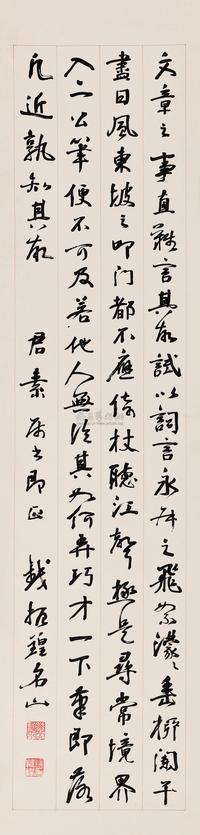 文章之事直難言其故試以詞言永叔之飛絮濛濛垂柳闌干
盡日風東坡之叩门都不應倚杖聽江聲極是尋常境界
入二公筆便不可及若他人無論其如何弄巧才一下筆即落
凡近孰知其故 君素屬書即正 錢振鍠名山